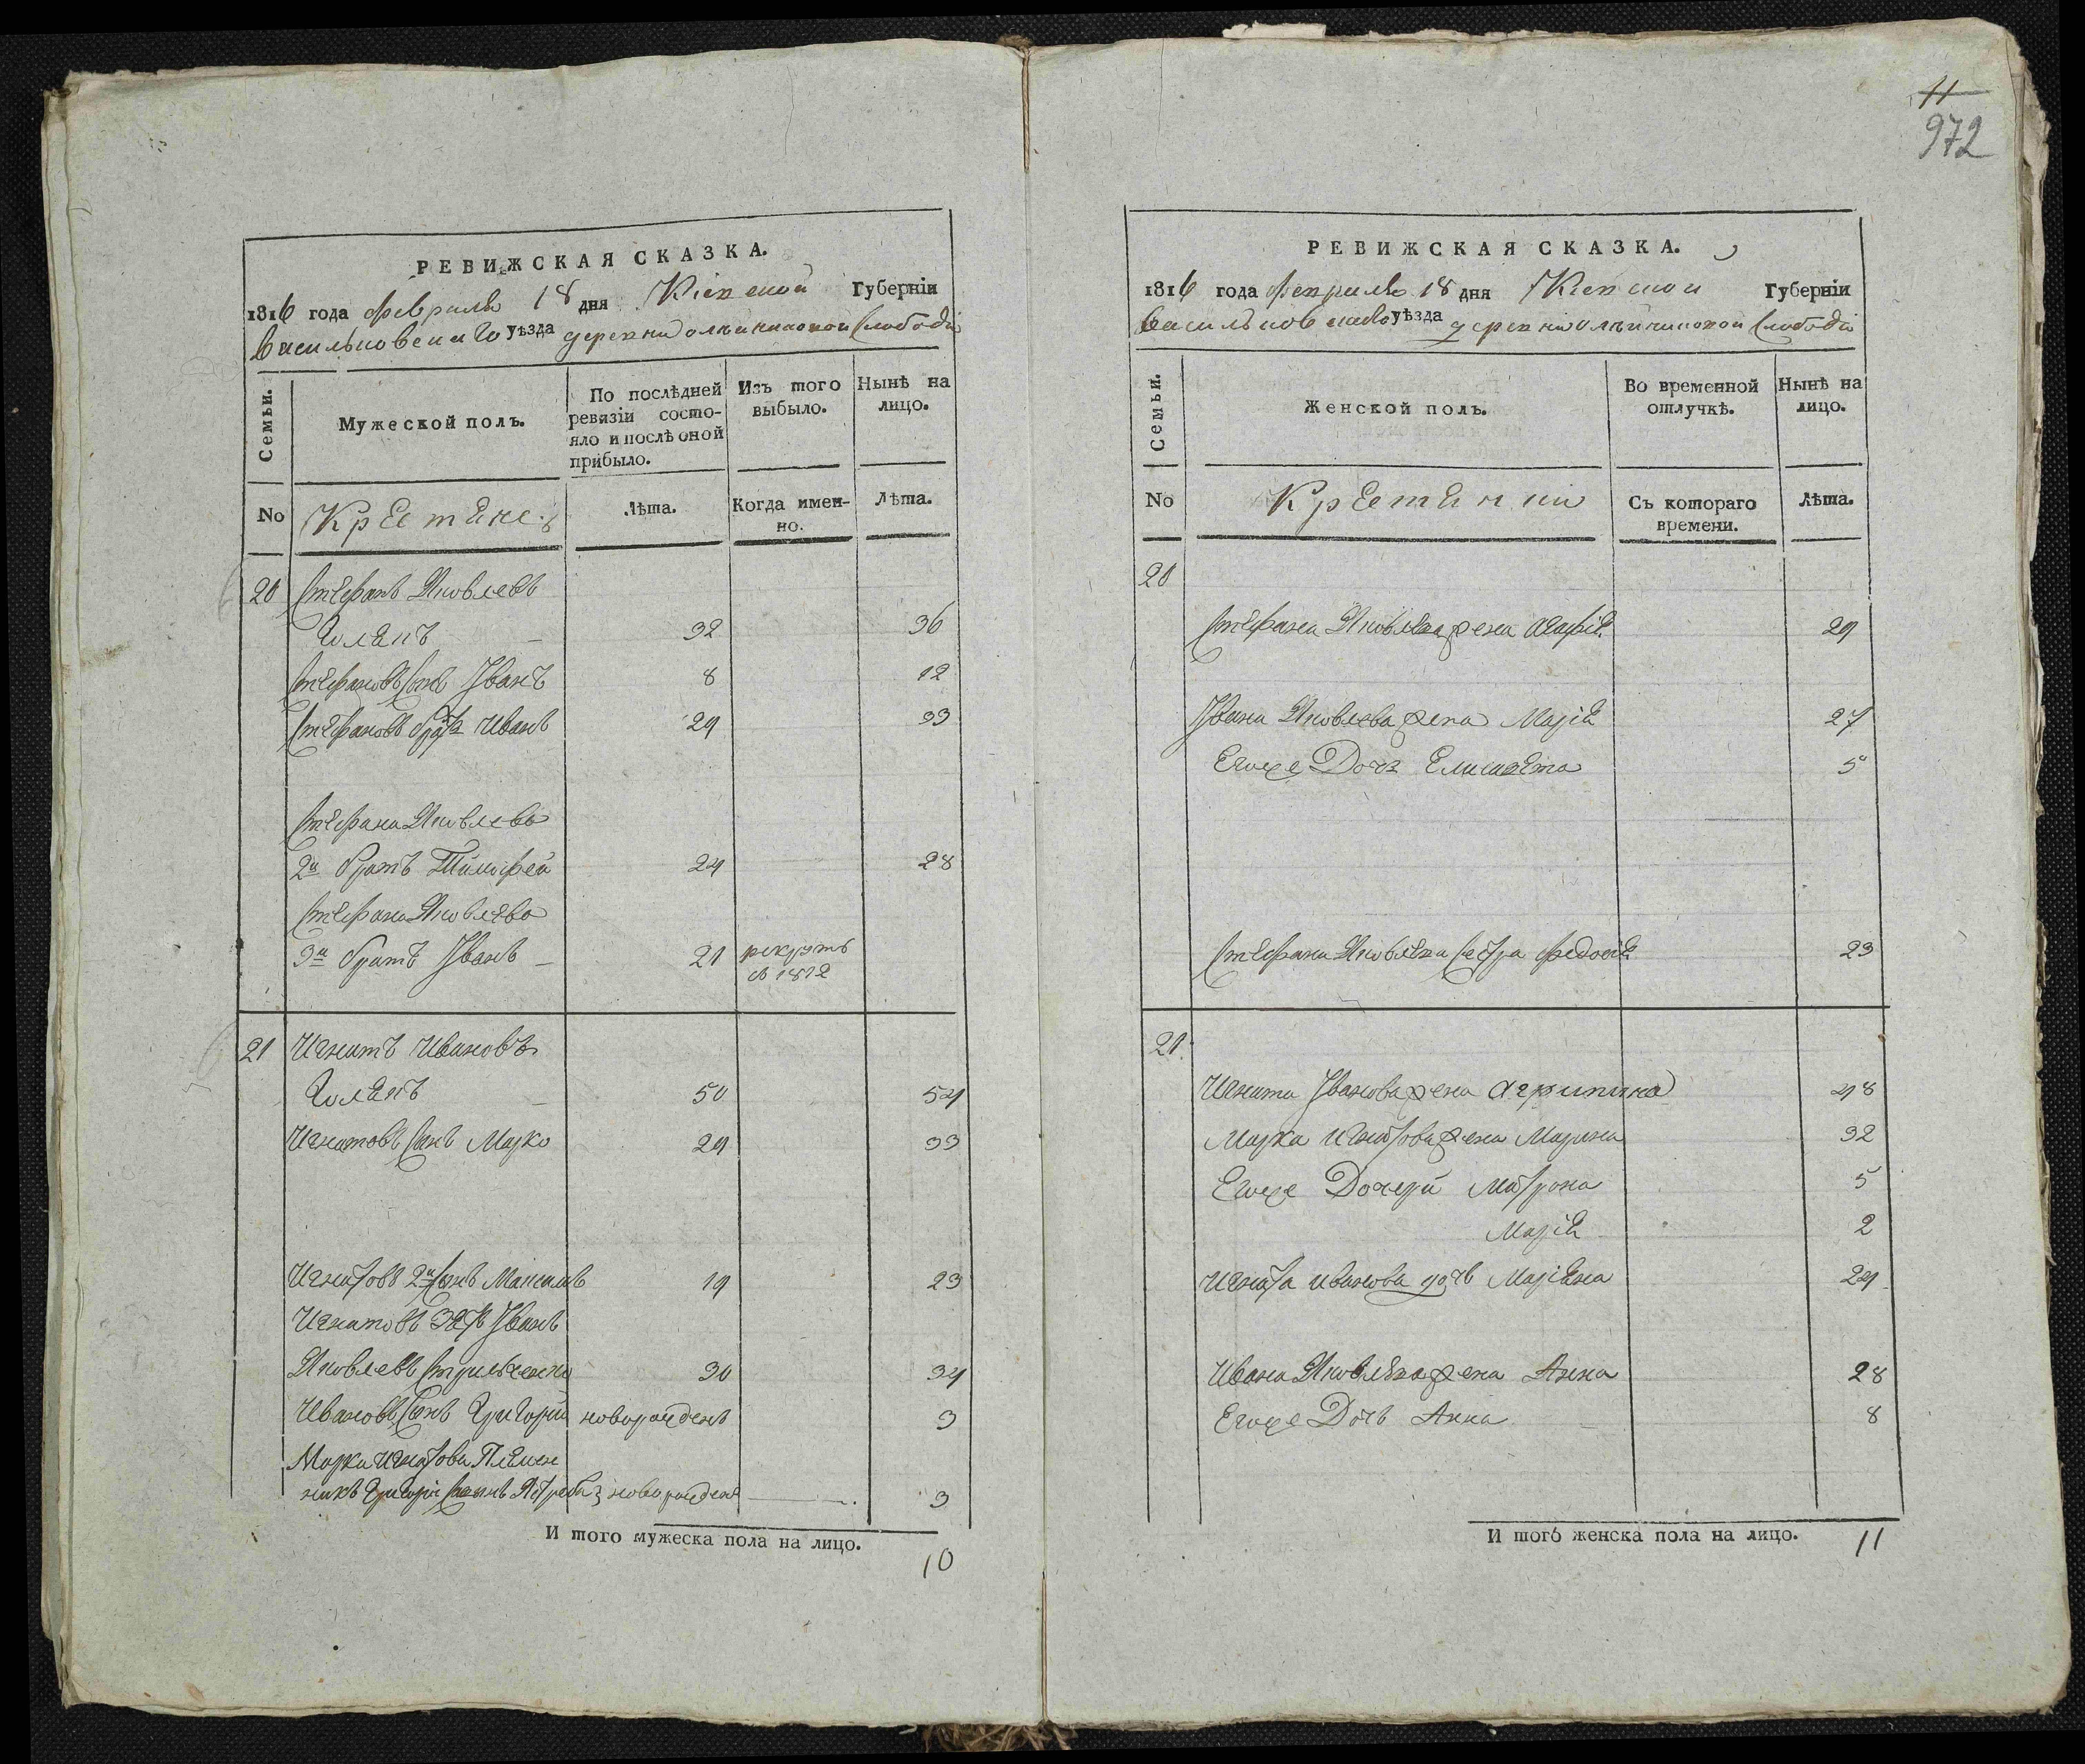 11
972
РЕВИЖСКАЯ СКАЗКА.
1816 года февраля 18 дня Кіевской Губерніи
Васильковскаго уѣзда деревни Слободы
Семьи.
Мужеской полъ.
По послѣдней ревизіи состо-
яло и послѣ оной
прибыло.
Изъ того
выбыло.
Нынѣ на
лицо.
No
Крестяне
Лѣта.
Когда имен-
но.
Лѣта.
20 Стефанъ Яковлевъ
32 36
Стефановъ Сынъ Іванъ 8 12
Стефановъ братъ Иванъ 29 33
Стефана Яковлева
2й братъ Тимофей 24 28
Стефана Яковлева
3й братъ Іванъ 21 рекрутъ
в 1812
21 Игнатъ Ивановъ
50 54
Игнатовъ Сынъ Марко 29 33
Игнатовъ 2й Сынъ Максимъ 19 23
Игнатовъ зять Іванъ
Яковлевъ 30 34
Ивановъ Сынъ Григорій новорожденъ 3
Марка Игнатова Племен
никъ Григорій новорожденъ 3
И того мужеска пола на лицо.
10
РЕВИЖСКАЯ СКАЗКА.
1816 года февраля 18 дня Кіевской Губерніи
Васильковскаго уѣзда деревни Слободы
Семьи.
Женской полъ.
Во временной
отлучкѣ.
Нынѣ на
лицо.
No
Крестянки
Съ котораго
времени.
Лѣта.
20
Стефана Яковлева жена Агафія 29
Івана Яковлева жена Марія 27
Егоже Дочь Елисавета 5
Стефана Яковлева сестра Федосія 23
21
Игната Іванова жена Агрипина 48
Марка Игнатова жена Марина 32
Егоже Дочери Матрона 5
Марія 2
Игната Иванова дочь Маріяна 24
Ивана Яковлева жена Анна 28
Егоже Дочь Анна 8
И того женска пола на лицо.
11